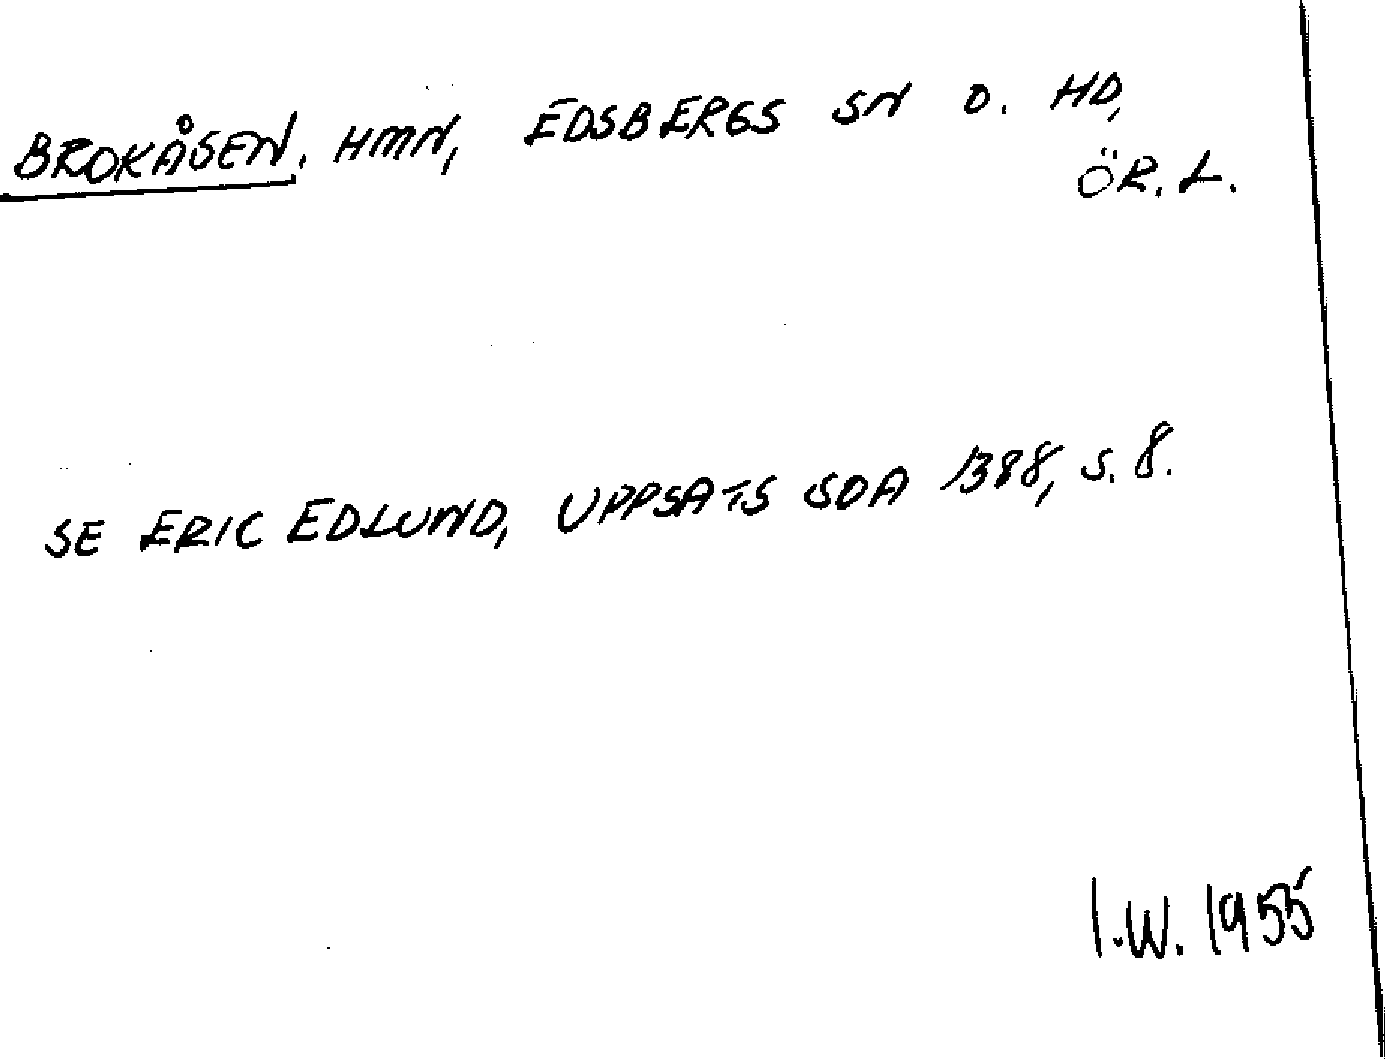 BROKÅSEN, HMN, EDSBERGS SN O. HD,
ÖR. L.
SE ERIC EDLUND, UPPSATS SOA 1388, S. 8.
I.W. 1955